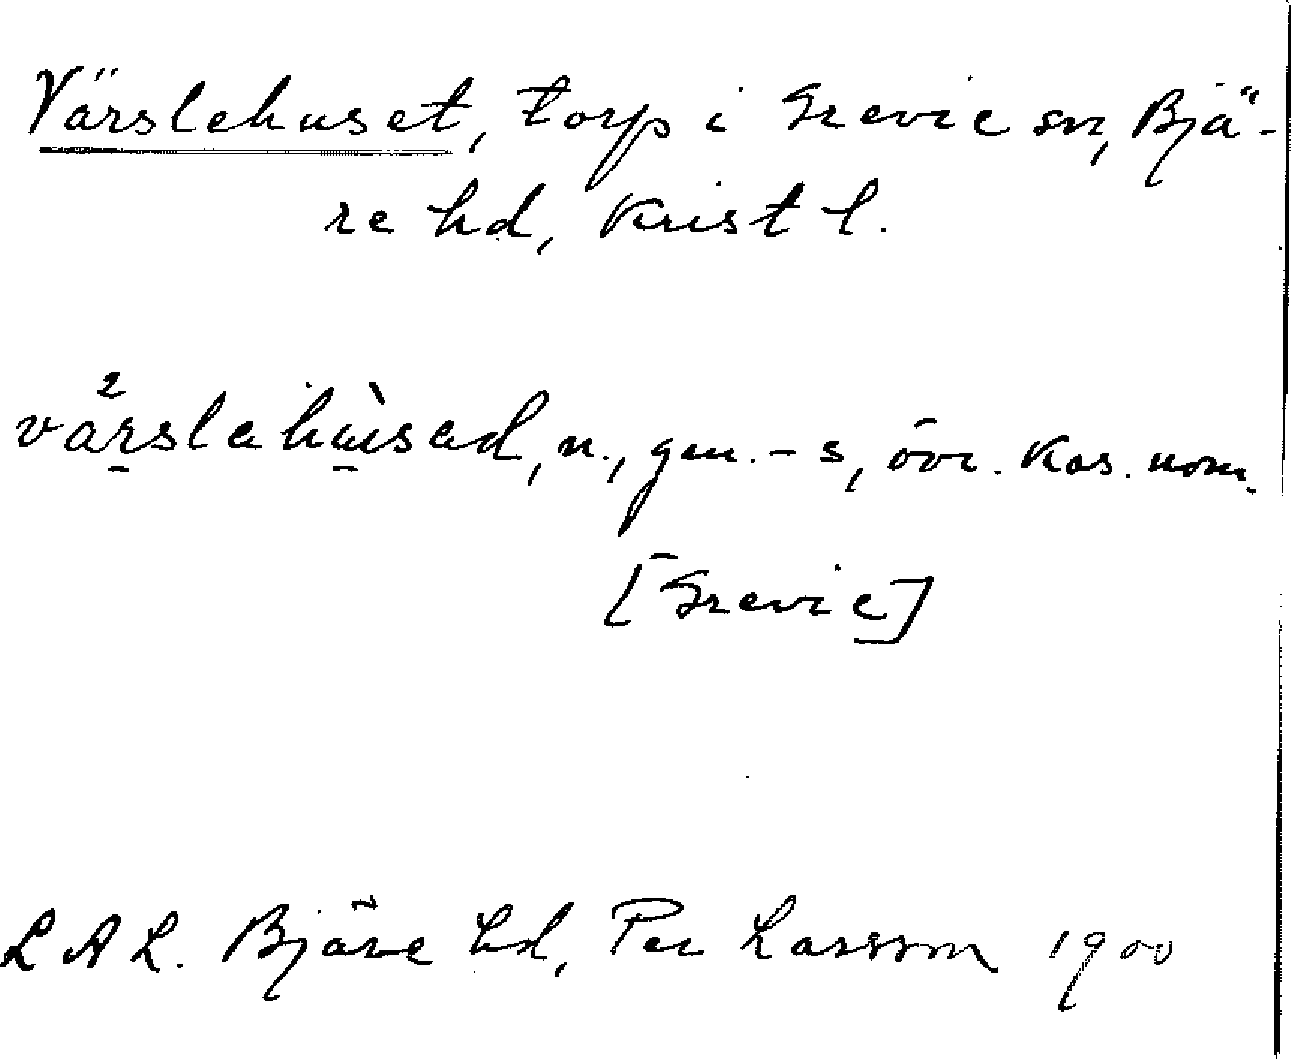 Värslehuset, torp i Grevie sn, Bjä-
re hd, Krist l.
n., gen. -s, övr. kas. nom.
[Grevie]
LAL. Bjäre hd, Per Larsson 1900